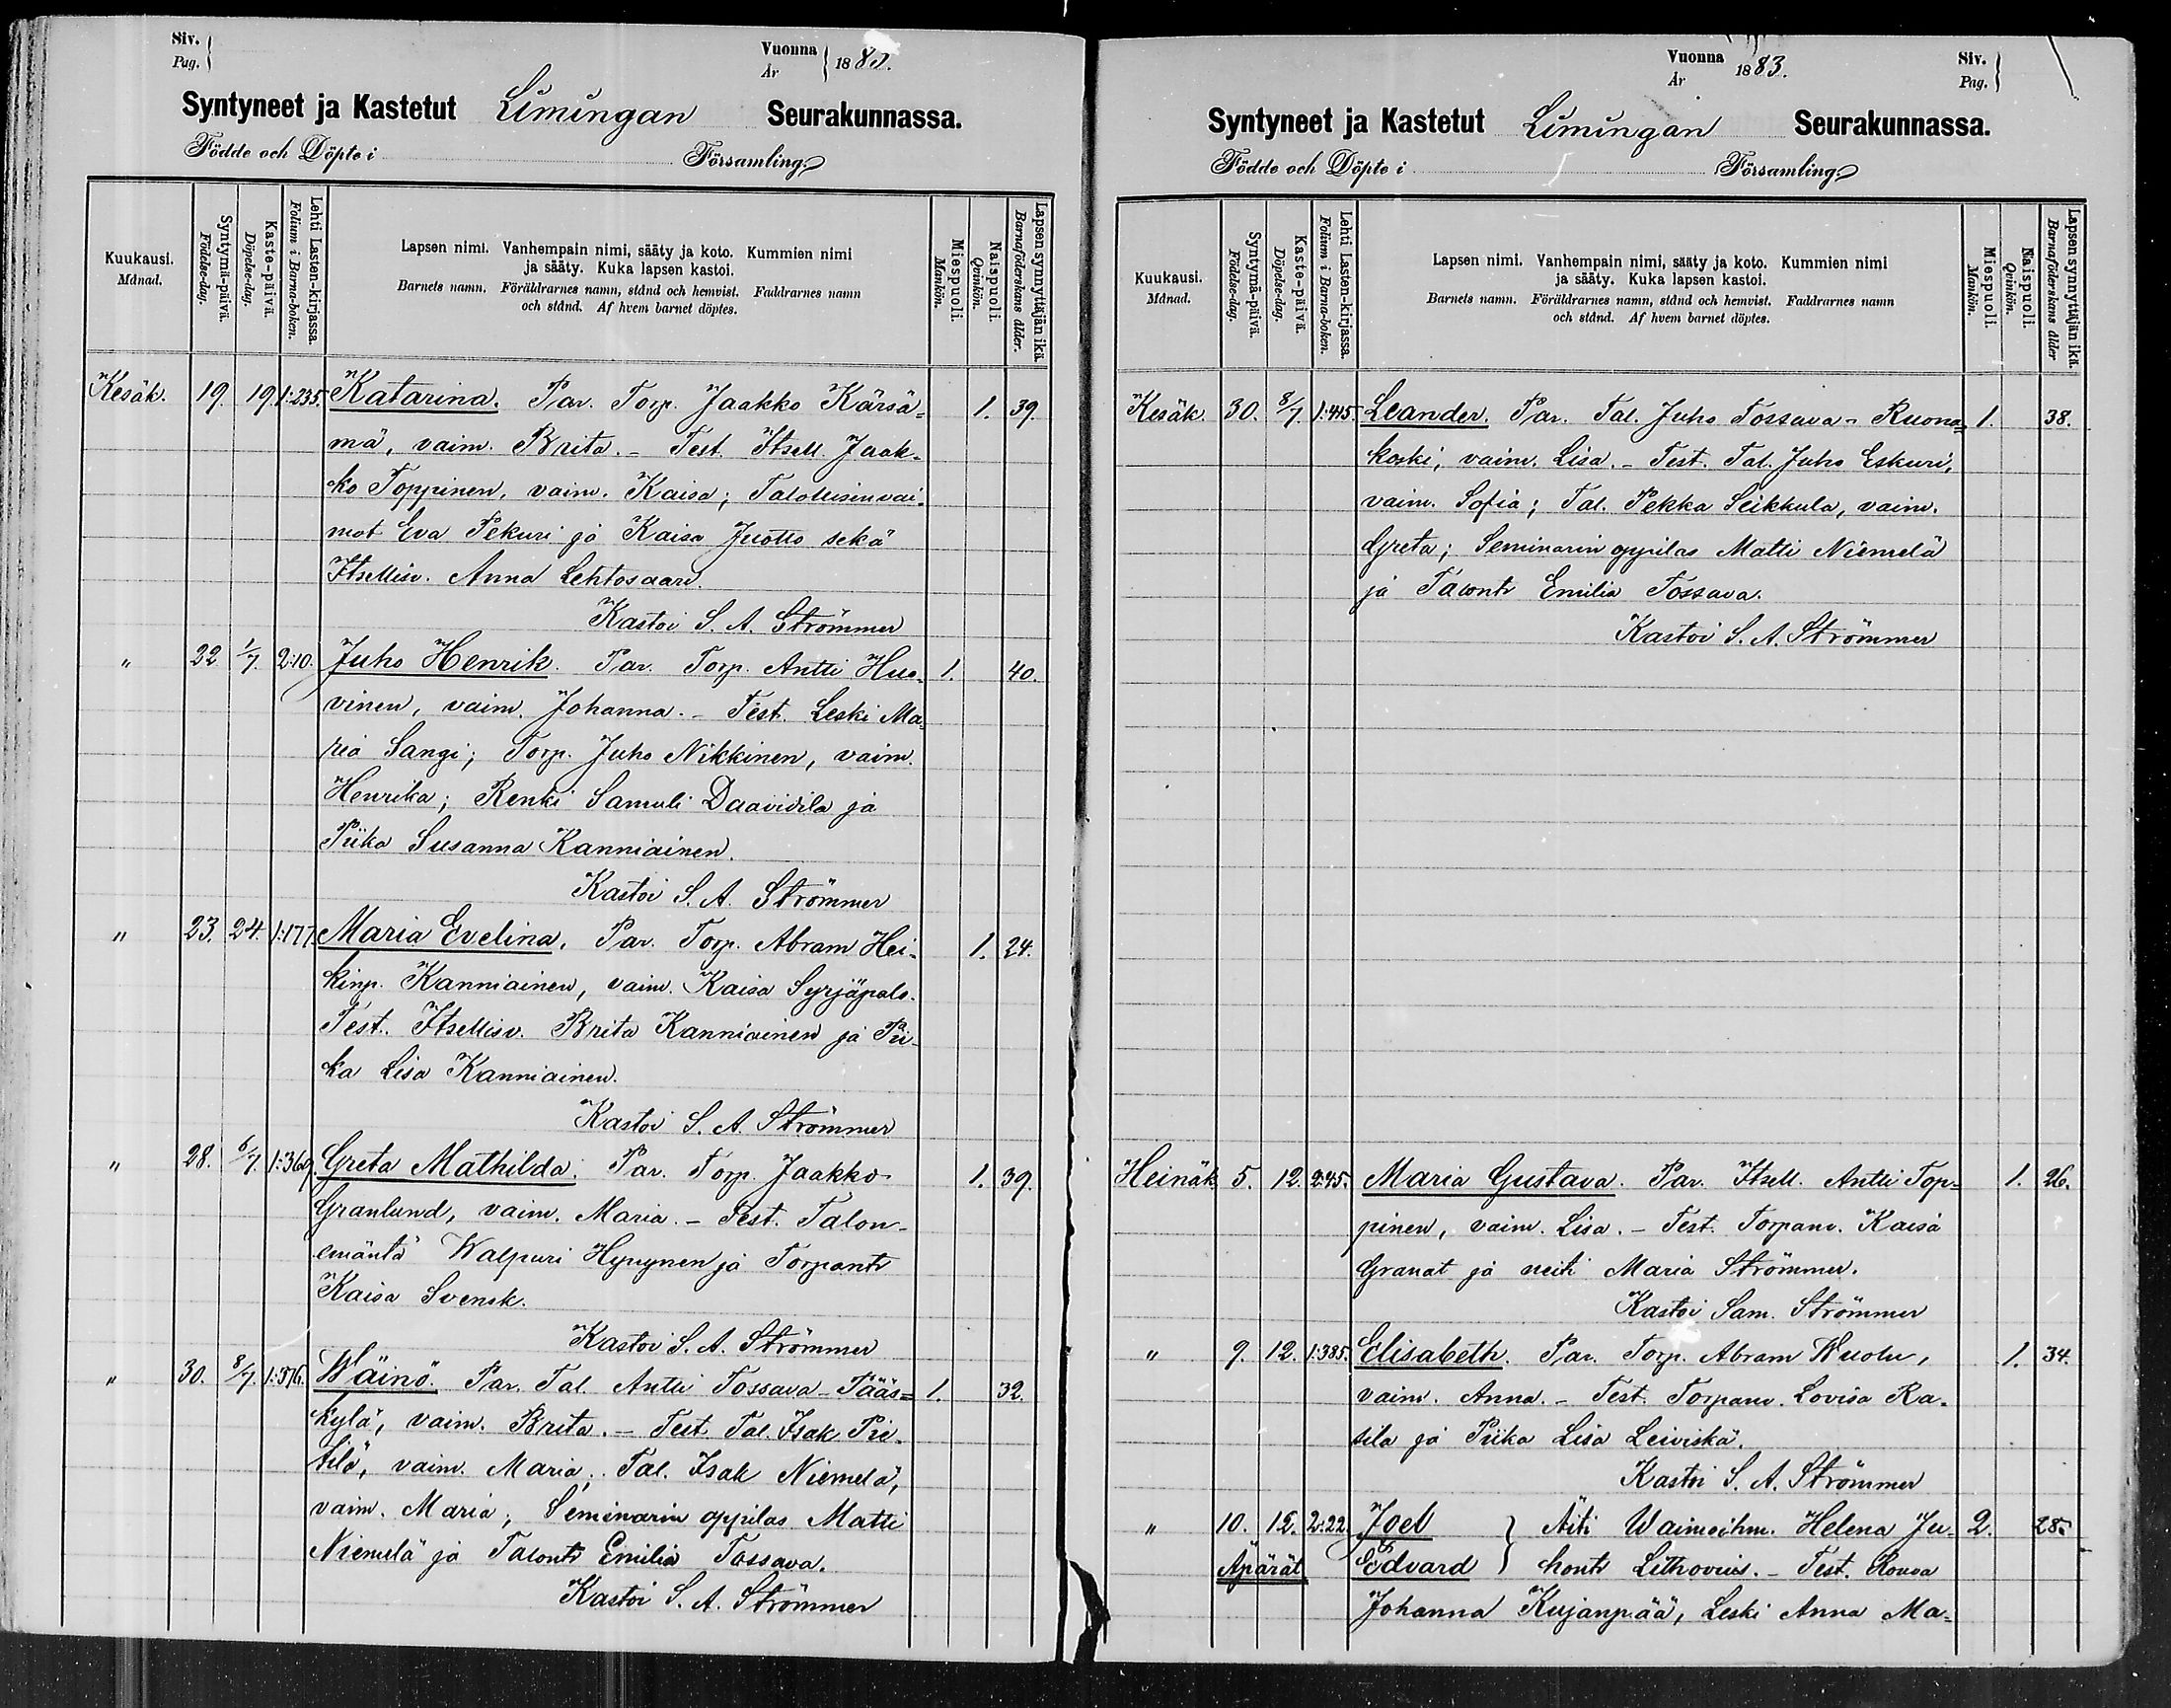 Siv.
Pag.
Vuonna
År
188
Syntyneet ja Kastetut Limingan Seurakunnassa.
Födde och Döpte i Församling.
Kuukausi.
Månad.
Syntymä-päivä.
Födelse-dag.
Kaste-päivä.
Döpelse-dag.
Lehti Lasten-kirjassa.
Folium i Barna-boken.
Lapsen nimi. Vanhempain nimi, sääty ja koto. Kummien nimi
ja sääty. Kuka lapsen kastoi.
Barnets namn. Föräldrarnes namn, stånd och hemvist. Faddrarnes namn
och stånd. Af hvem barnet döptes.
Miespuoli.
Mankön.
Naispuoli.
Qvinkön.
Lapsen synnyttäjän ikä.
Barnaföderskans ålder.
Kesäk. 19. 19. 1:235. Katarina. Par. Torp. Jaakko Kärsä- 1. 39.
mä, vaim. Brita. - Test. Itsell. Jaak-
ko Toppinen, vaim. Kaisa; Talollisen vai-
mot Eva Pekuri ja Kaisa Juotto sekä
Itsellisv. Anna Lehtosaari.
Kastoi S. A. Strömmer
" 22 1/7. 2:10. Juho Henrik. Par. Torp. Antti Huo- 1. 40.
vinen, vaim. Johanna. - Test. Leski Ma-
ria Sangi; Torp. Juho Nikkinen, vaim.
Henrika; Renki Samuli Daavidila ja
Piika Susanna Kanniainen.
Kastoi S. A. Strömmer
" 23. 24. 1:177. Maria Evelina. Par. Torp. Abram Hei- 1. 24.
kinp. Kanniainen, vaim. Kaisa Syrjäpalo.
Test. Itsellisv. Brita Kanniainen ja Pii-
ka Lisa Kanniainen.
Kastoi S. A. Strömmer
" 28. 6/7. 1:369. Greta Mathilda. Par. Torp. Jaakko 1. 39.
Granlund, vaim. Maria. - Test. Talon-
emäntä Walpuri Hyyrynen ja Torpantr
Kaisa Svensk.
Kastoi S. A. Strömmer
" 30. 8/7. 1:376. Wäinö. Par. Tal. Antti Tossava-Pääs= 1. 32.
kylä, vaim. Brita. - Test. Tal. Isak Pie-
tilä, vaim. Maria; Tal. Isak Niemelä,
vaim. Maria; Seminarin oppilas Matti
Niemelä ja Talontr Emilia Tossava.
Kastoi S. A. Strömmer
Vuonna
År
1883.
Siv.
Pag.
Syntyneet ja Kastetut Limingan Seurakunnassa.
Födde och Döpte i Församling.
Kuukausi.
Månad.
Syntymä-päivä.
Födelse-dag.
Kaste-päivä.
Döpelse-dag.
Lehti Lasten-kirjassa.
Folium i Barna-boken.
Lapsen nimi. Vanhempain nimi, sääty ja koto. Kummien nimi
ja sääty. Kuka lapsen kastoi.
Barnets namn. Föräldrarnes namn, stånd och hemvist. Faddrarnes namn
och stånd. Af hvem barnet döptes.
Miespuoli.
Mankön.
Naispuoli.
Qvinkön.
Lapsen synnyttäjän ikä.
Barnaföderskans ålder
Kesäk. 30. 8/7. 1:415. Leander. Par. Tal. Juho Tossava-Ruona= 1. 38.
koski, vaim. Lisa. - Test. Tal. Juho Eskuri,
vaim. Sofia; Tal. Pekka Seikkula, vaim.
Greta; Seminarin oppilas Matti Niemelä
ja Talontr Emilia Tossava.
Kastoi S. A. Strömmer
Heinäk. 5. 12. 2:45. Maria Gustava. Par. Itsell. Antti Top= 1. 26.
pinen, vaim. Lisa. - Test. Torpanv. Kaisa
Granat ja neiti Maria Strömmer.
Kastoi Sam. Strömmer
" 9. 12. 1:385. Elisabeth. Par. Torp. Abram Wuolu, 1. 34.
vaim. Anna. - Test. Torpanv. Lovisa Ra-
sila ja Piika Lisa Leiviskä.
Kastoi S. A. Strömmer
" 10. 12. 2:22. Joel } Äiti Waimoihm. Helena Ju- 2. 28.
Äpärät Edvard } hontr Lithovius. - Test. Rouva
Johanna Kujanpää, Leski Anna Ma=